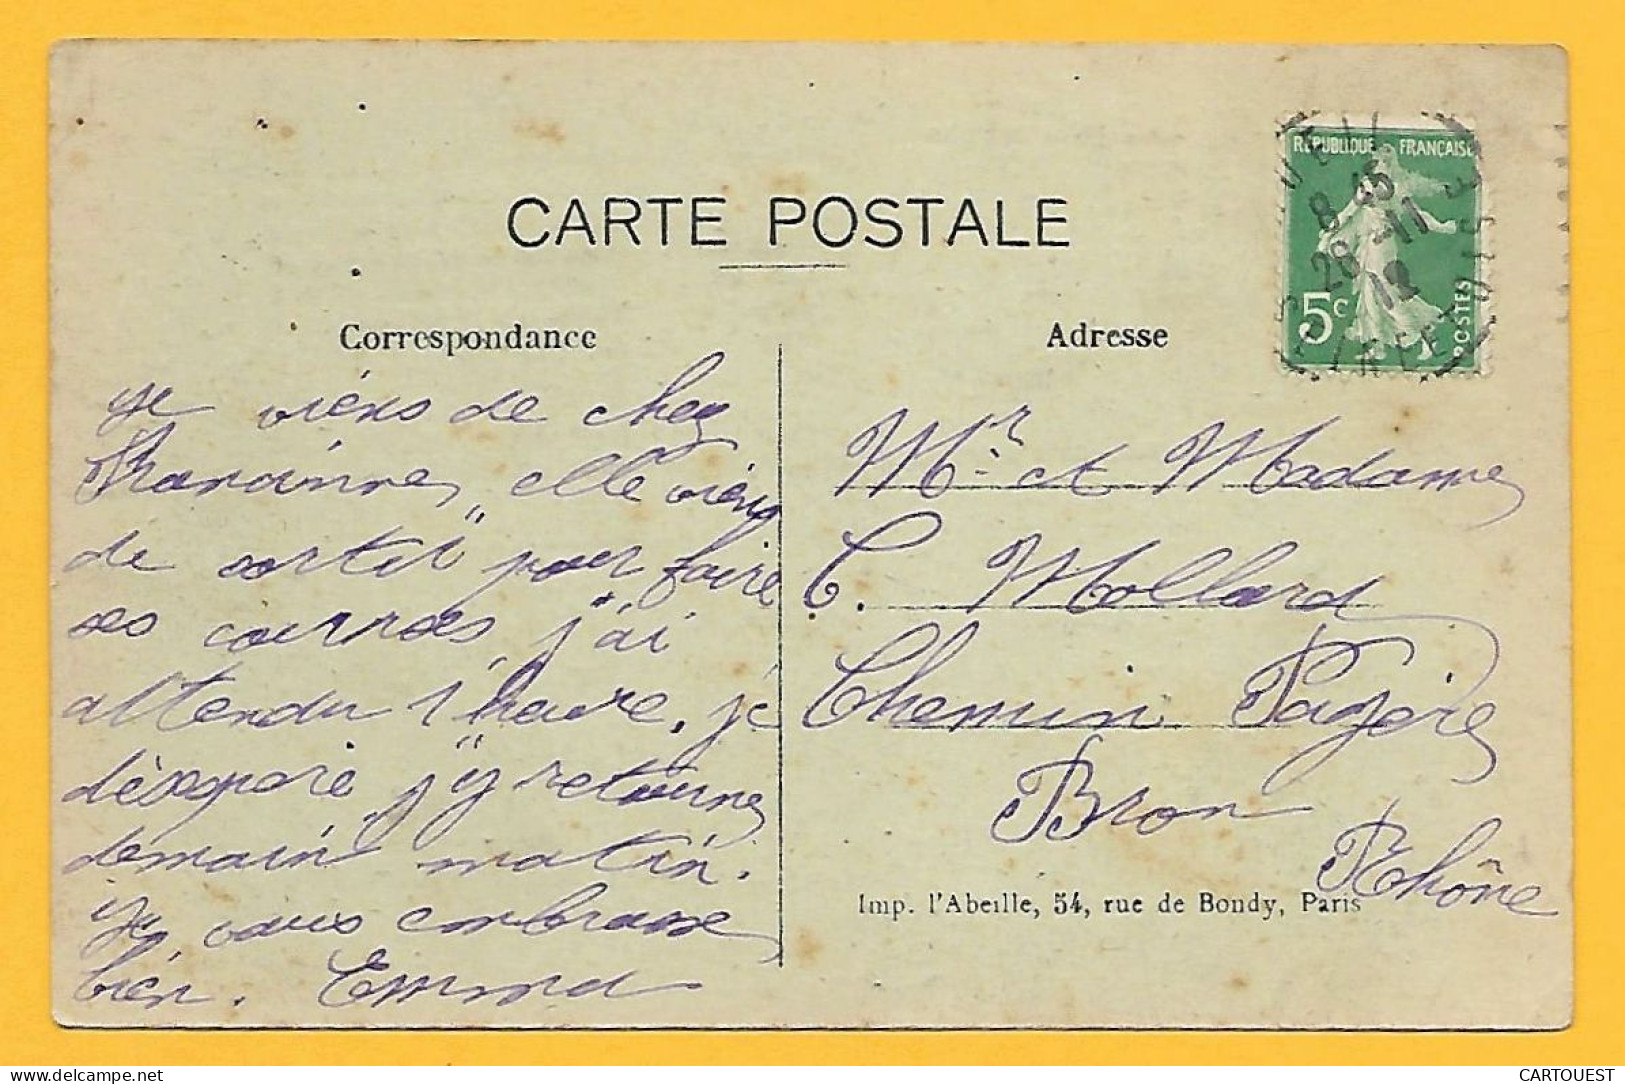 CARTE POSTALE
Correspondance
Adresse
RÉPUBLIQUE FRANÇAISE
8 45
28 - 11
12
5c
POSTES
je viens de chez
elle viens
de sortir pour faire
ses courses, j'ai
attendu 1 heure, je
désespère, j'y retourne
demain matin.
Je vous embrasse
bien. Emma
Mr et Madame
C. Mollard
Chemin Pagère
Bron
Rhône
Imp. l'Abeille, 54, rue de Bondy, Paris
CARTOUEST